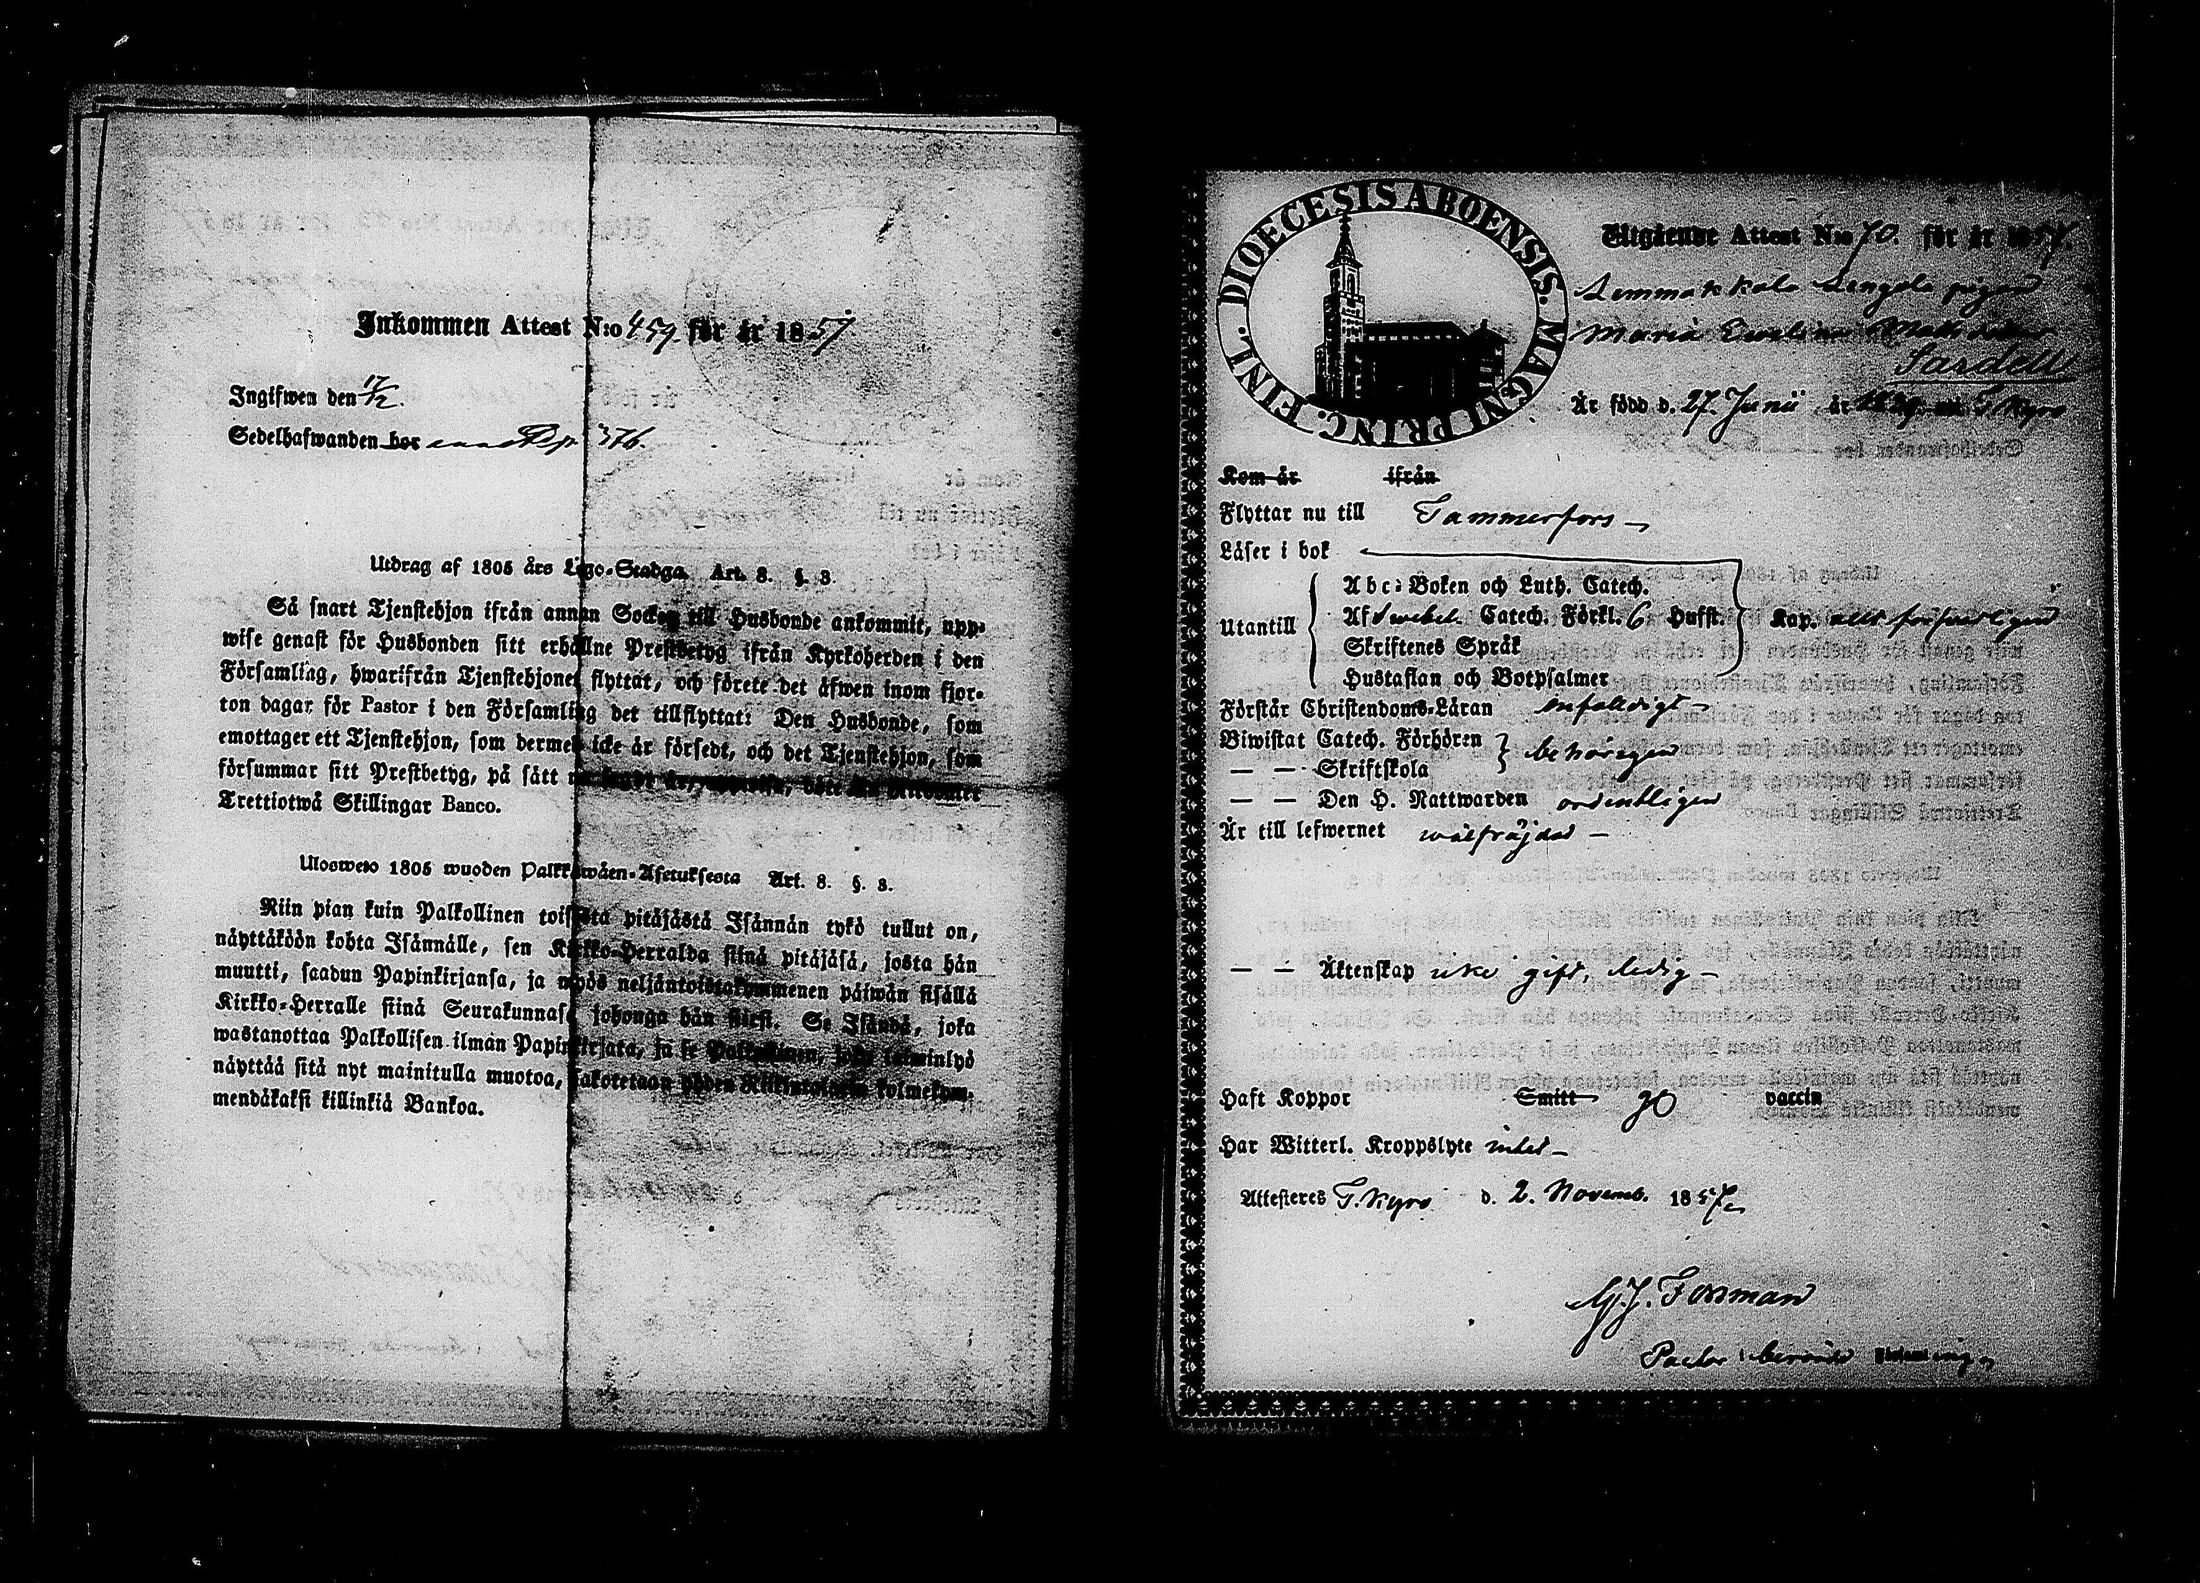 Inkommen Attest N:o 459 för år 1857
Ingifwen den 17/12.
Sedelhafwanden bor 376.
Utdrag af 1805 års Lego-Stadga Art. 8. §. 3.
Så snart Tjenstehjon ifrån annan Socken till Husbonde ankommit, upp-
wise genast för Husbonden sitt erhållne Prestbetyg ifrån Kyrkoherden i den
Församling, hwarifrån Tjenstehjonet flyttat, och förete det äfwen inom fjor-
ton dagar för Pastor i den Församling det tillflyttat: Den Husbonde, som
emottager ett Tjenstehjon, som dermed icke är försedt, och det Tjenstehjon, som
försummar sitt Prestbetyg, på sätt
Trettiotwå Skillingar Banco.
Ulosweto 1805 wuoden Palkkawäen-Asetuksesta Art. 8. §. 3.
Niin pian kuin Palkollinen toisesta pitäjästä Isännän tykö tullut on,
näyttäköön kohta Isännälle, sen Kirkko-Herralda siinä pitäjäsä, josta hän
muutti, saadun Papinkirjansa, ja myös neljäntoistakymmenen päiwän sisällä
Kirkko-Herralle siinä Seurakunnasa johonga hän siirsi. Se Isändä, joka
wastanottaa Palkollisen ilman Papinkirjata, ja se Palkollinen, joka laiminlyö
näyttää sitä nyt mainitulla muotoa, sakotetaan yhden Riikintalarin kolmekym-
mendäkaksi killinkiä Bankoa.
DIOECESIS ABOENSIS. MAGNI PRINC. FINL.
Utgående Attest N:o 70. för år 1857.
Lemmakkala pigan
Maria Ewelina
Sardell
Är född d. 27. Junii år T. Kyro
Kom år ifrån
Flyttar nu till Tammerfors
Läser i bok
Utantill
Abc-Boken och Luth. Catech.
Af Swebel. Catech. Förkl. 6 Hufst. Kap. allt förswarligen
Skriftenes Språk
Hustaflan och Botpsalmer
Förstår Christendoms-Läran enfaldigt
Biwistat Catech. Förhören behörigen
— — Skriftskola
— — Den H. Nattwarden ordentligen
Är till lefwernet wälfräjdad
— — Äktenskap icke gift, ledig
Haft Koppor Smitt go vaccin
Har Witterl. Kroppslyte intet
Attesteres T. Kyro d. 2. Novemb. 1857
G. J. Forsman
Pastor